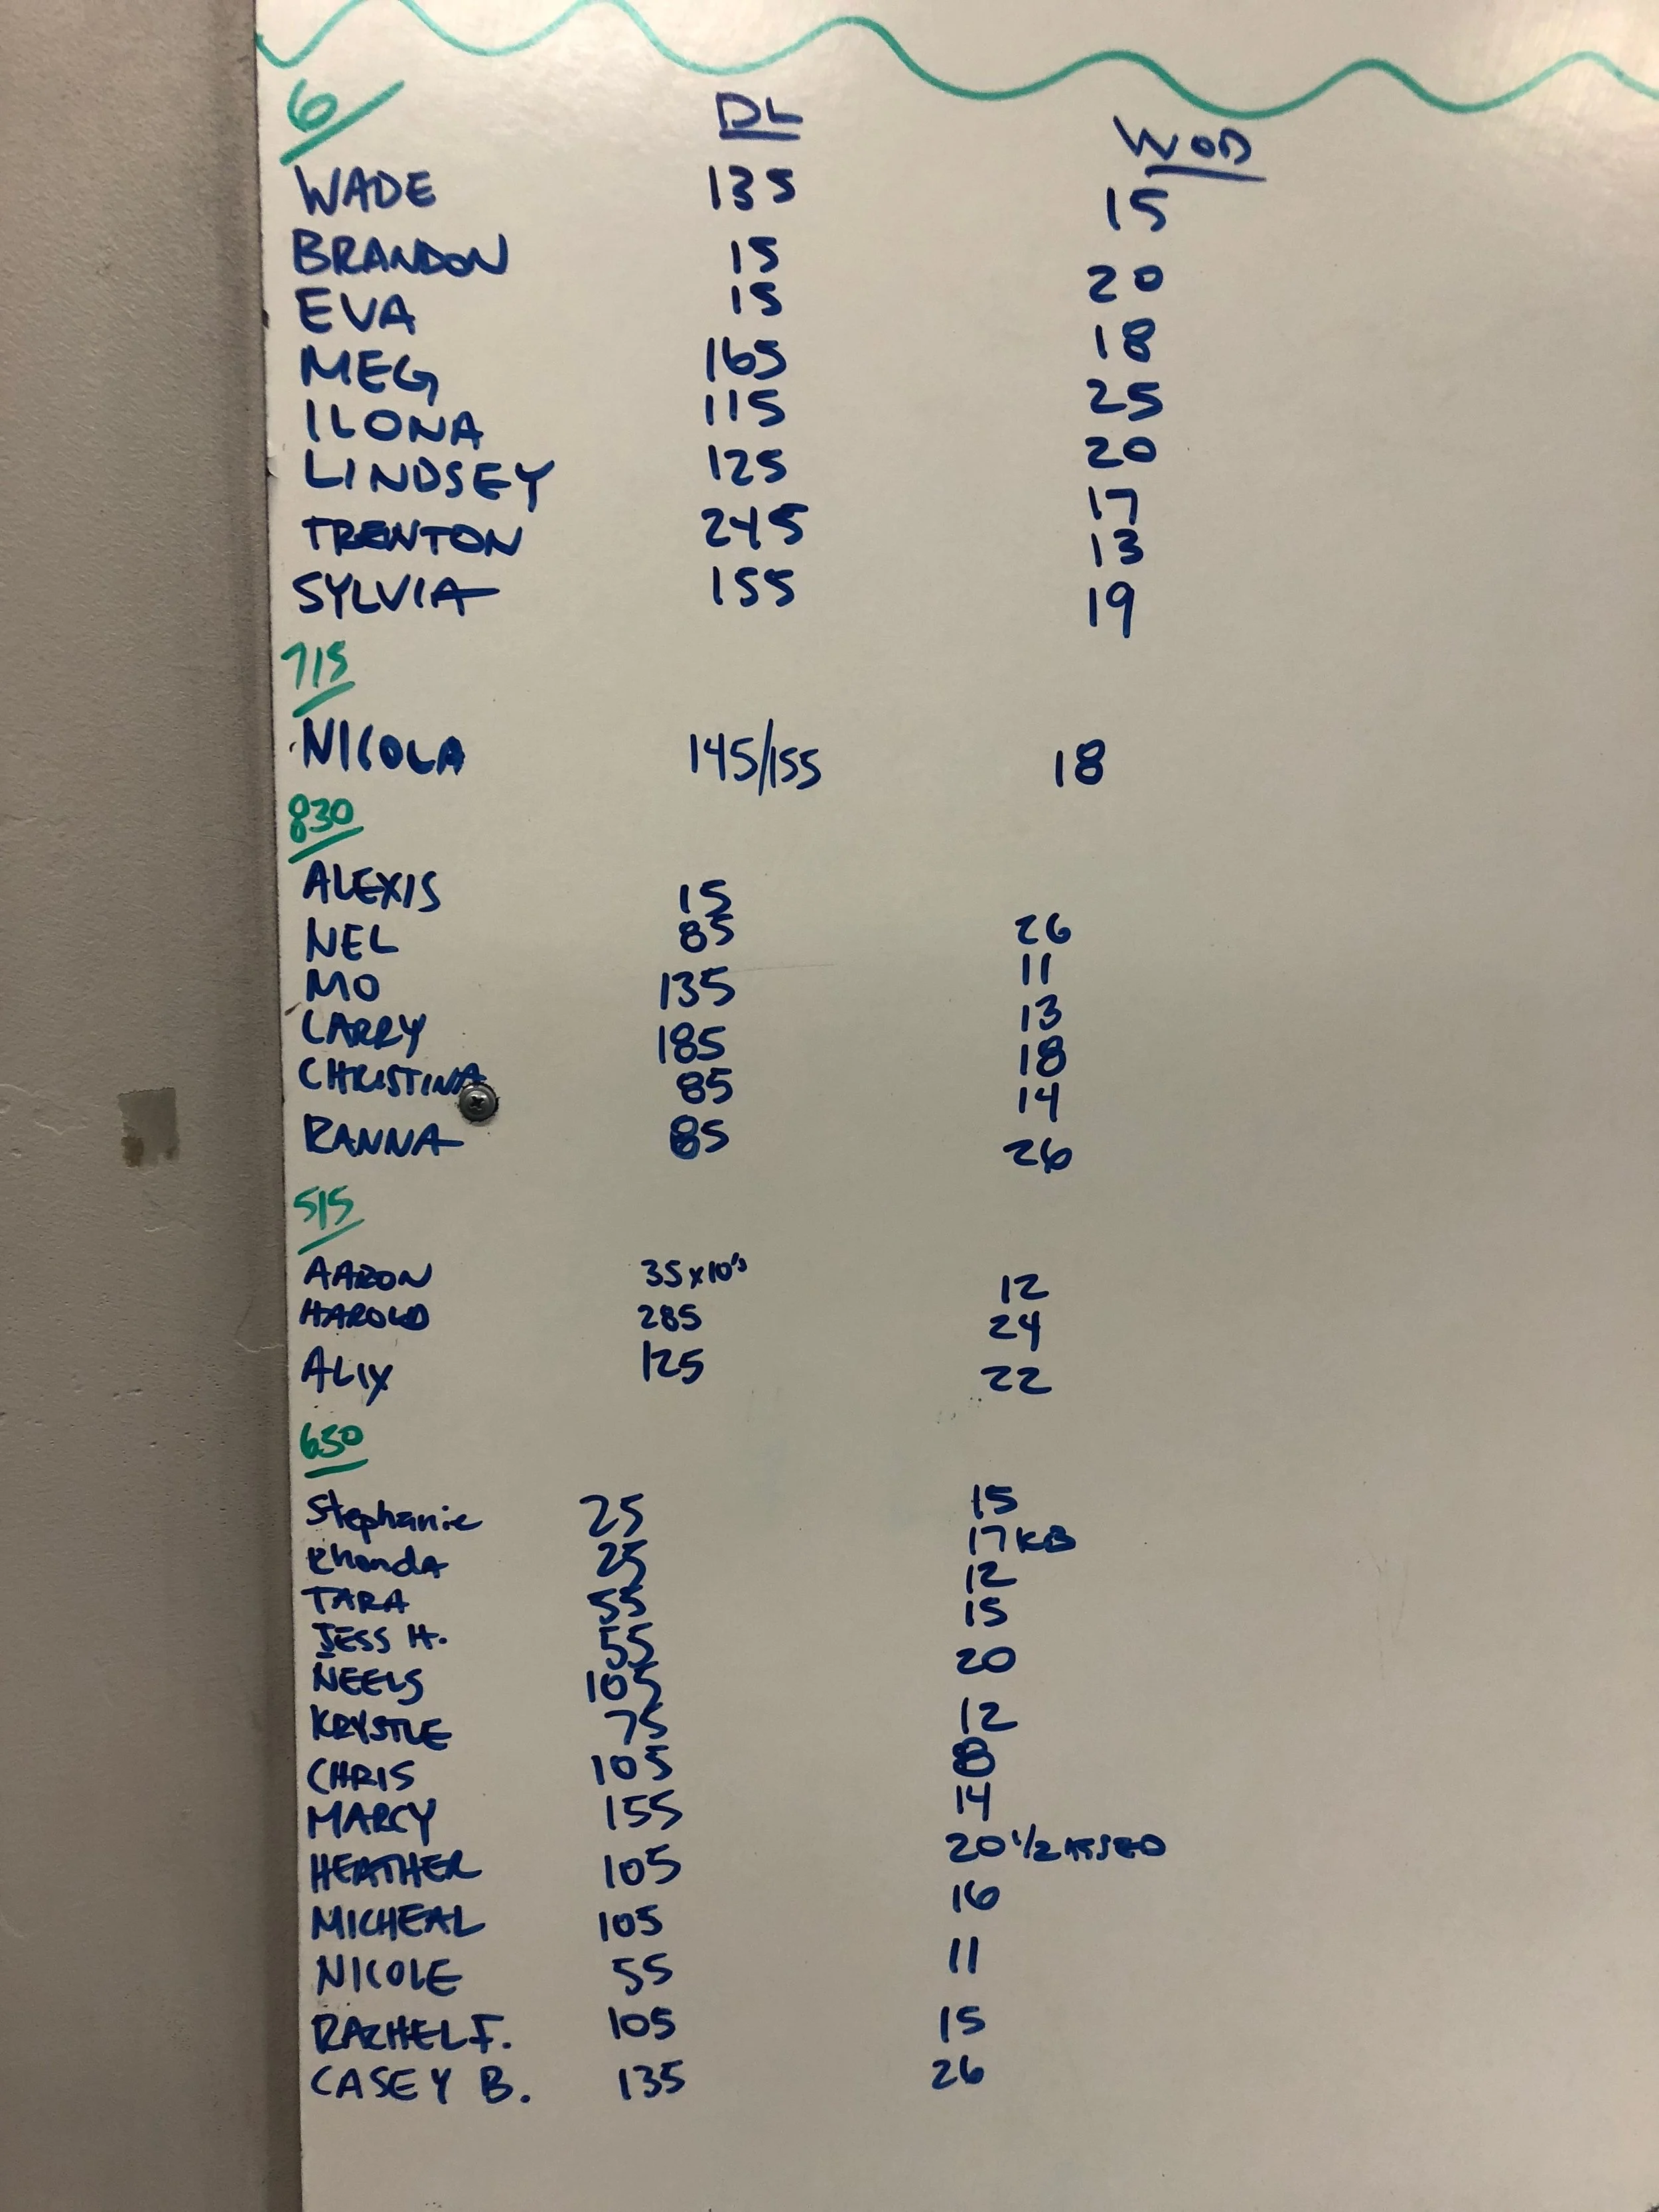 6 DL WOD
WADE 135 15
BRANDON 15 20
EVA 15 18
MEG 165 25
ILONA 115 20
LINDSEY 125 17
TRENTON 245 13
SYLVIA 155 19
715
NICOLA 145/155 18
830
ALEXIS 15 26
NEL 85 11
MO 135 13
LARRY 185 18
CHRISTINA 85 14
RANNA 85 26
515
AARON 35x10's 12
HAROLD 285 24
ALIX 125 22
650
Stephanie 25 15
RhondA 25 17 KB
TARA 55 12
JESS H. 55 15
NEELS 105 20
KRYSTLE 75 12
CHRIS 105 8
MARCY 155 14
HEATHER 105 20 1/2 ASSED
MICHEAL 105 16
NICOLE 55 11
RACHEL F. 105 15
CASEY B. 135 26